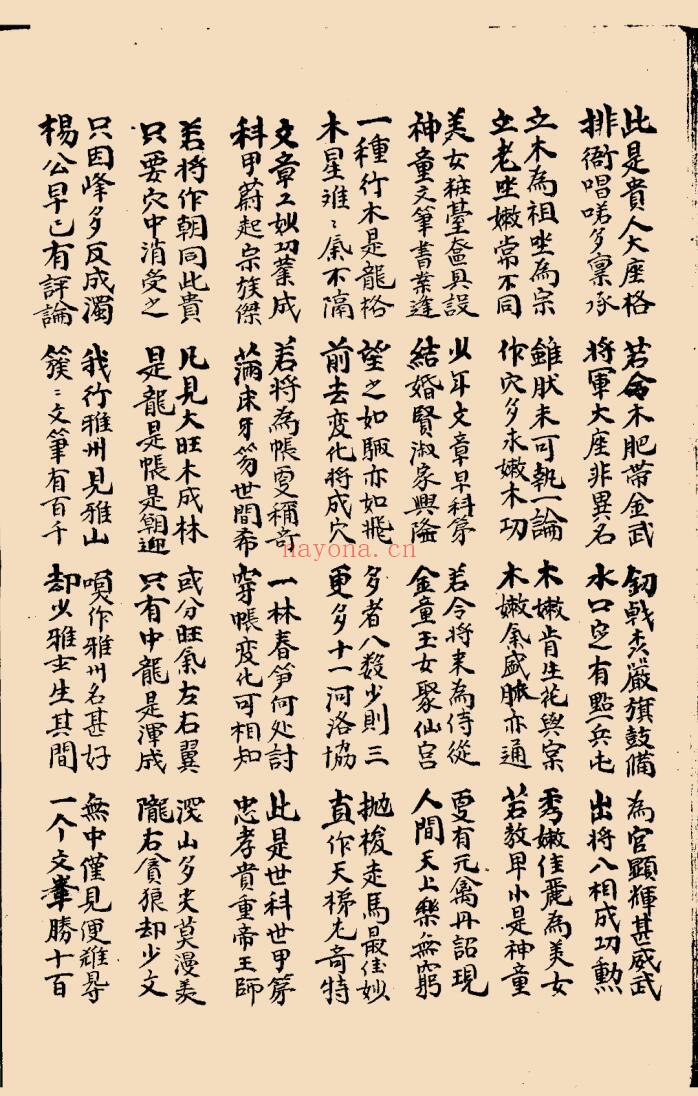 此是貴人大座格
排衙唱喏多稟承
若令木肥帶金武
將軍大座非異名
釰戟森嚴旗鼓備
水口定有點兵屯
為官顯輝甚威武
出將入相成功勲
立木為祖坐為宗
立老坐嫩常不同
雖肰未可執一論
作穴多求嫩木功
木嫩肯生花與菓
木嫩氣盛脈亦通
秀嫩佳麗為美女
若教早小是神童
美女粧臺奩具設
神童文筆書業逢
少年文章早科第
結婚賢淑家興隆
若令將来為侍從
金童玉女聚仙宫
更有元禽丹詔現
人間天上樂無窮
一種行木是龍格
木星進々氣不隔
望之如輛亦如飛
前去变化將成穴
多者八数少則三
更多十一河洛協
拋梭走馬最佳妙
直作天梯尤奇特
文章工妙功業成
科甲蔚起宗族傑
若將為帳更稱奇
滿床牙笏世間希
一林春笋何处討
穿帳变化可相知
此是世科世甲第
忠孝貴重帝王師
若將作朝同此貴
只要穴中消受之
凡見大旺木成林
是龍是帳是朝迎
或分旺氣左右翼
只有中龍是渾成
深山多支莫漫羡
隴右貪狼却少文
只因峰多反成濁
楊公早已有評論
我行雅州見雅山
簇々文筆有百千
嘆作雅州名甚好
却少雅士生其間
無中僅見便難尋
一个文峯勝十百